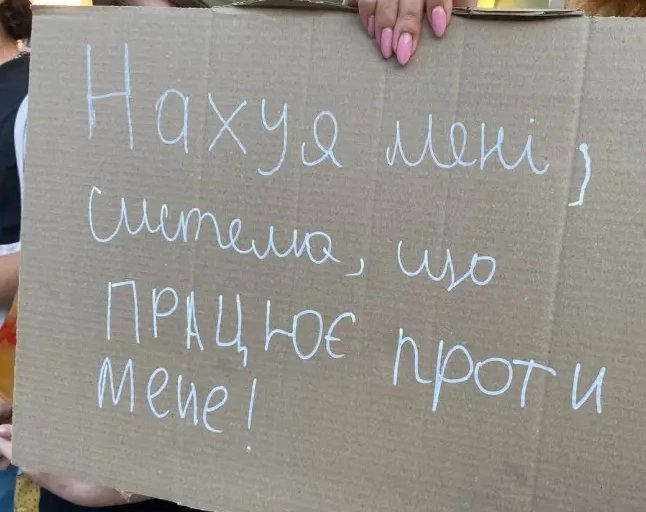 Нахуя мені,
система, що
ПРАЦЮЄ проти
мене!